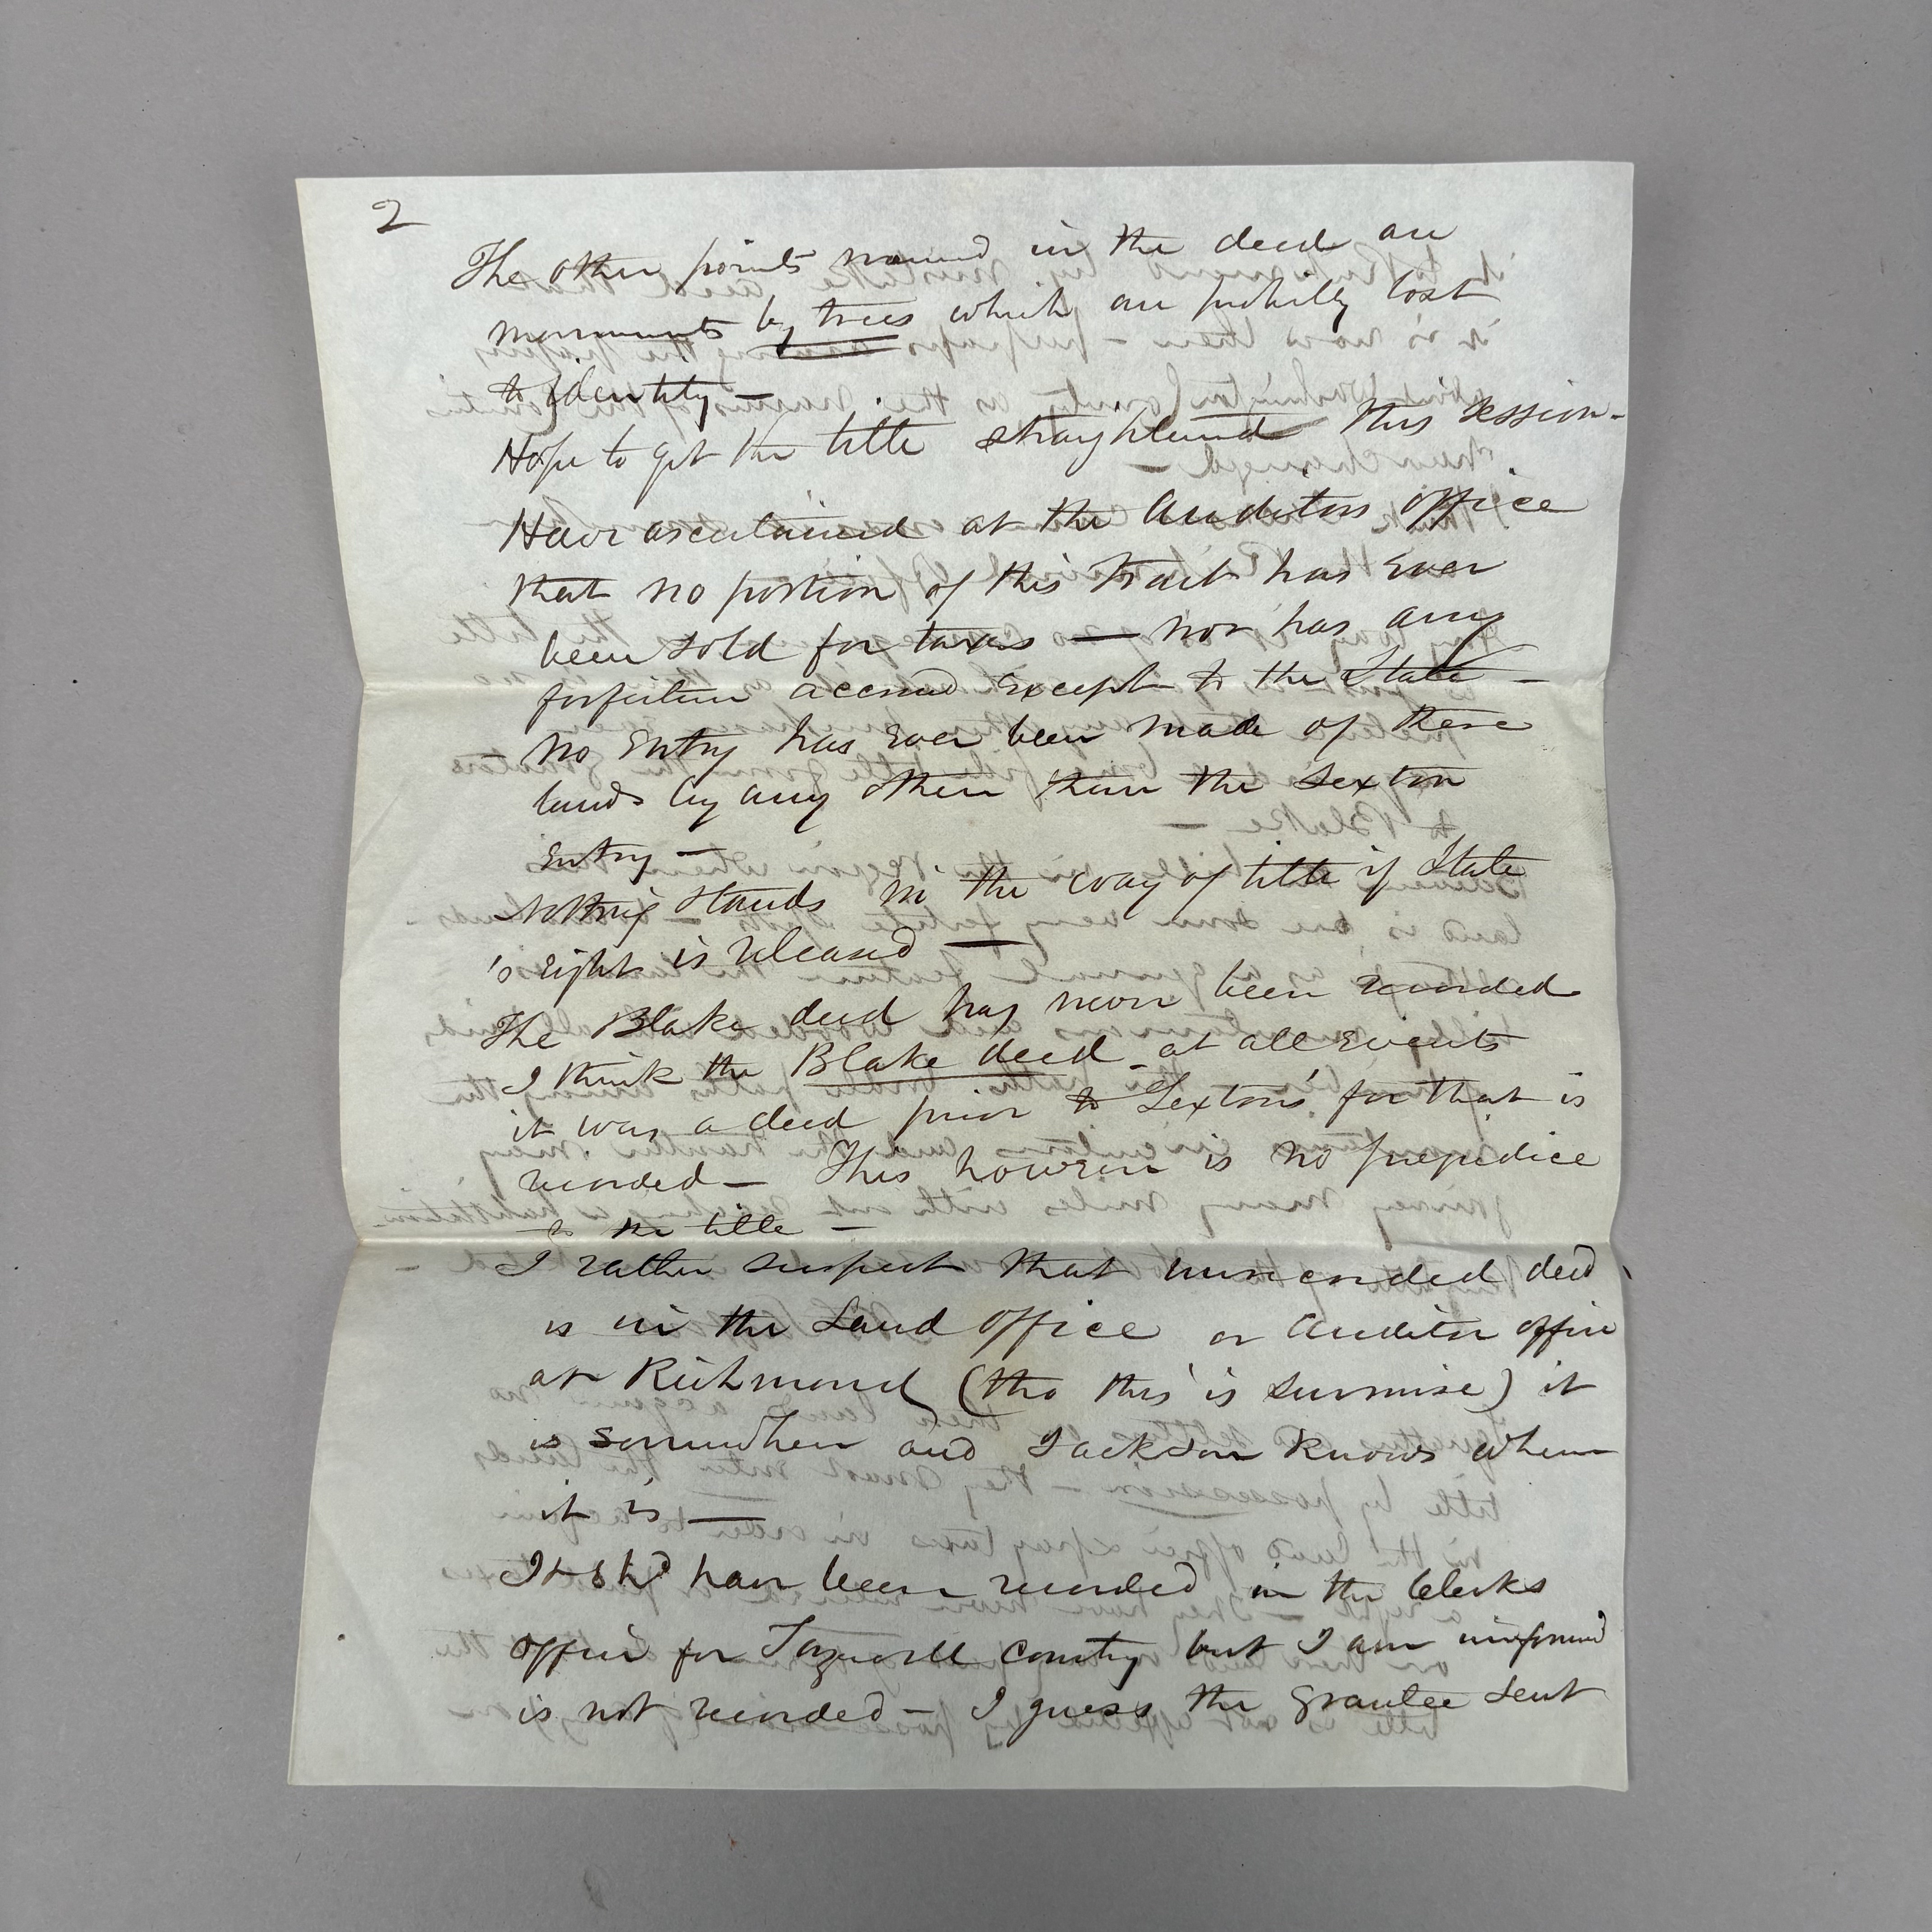 2
The other points named in the deed are
monuments by trees which are probably lost
to identity —
Hope to get the title straightened this session -
Have ascertained at the Auditors office
that no portion of this tract has ever
been sold for taxes — nor has any
forfeiture accrued except to the State —
no Entry has ever been made of these
lands by any other than the Sexton
Entry —
Nothing stands in the way of title if State
's right is released —
The Blake deed has never been recorded
I think the Blake deed - at all Events
it was a deed prior to Sexton's for that is
recorded — This however is no prejudice
to the title —
I rather suspect that unrecorded deed
is in the Land office or Auditor office
at Richmond (tho this is surmise) it
is somewhere and Jackson knows where
it is —
It shd have been recorded in the Clerks
office for Tazewell County but I am informd
is not recorded — I guess the grantee sent